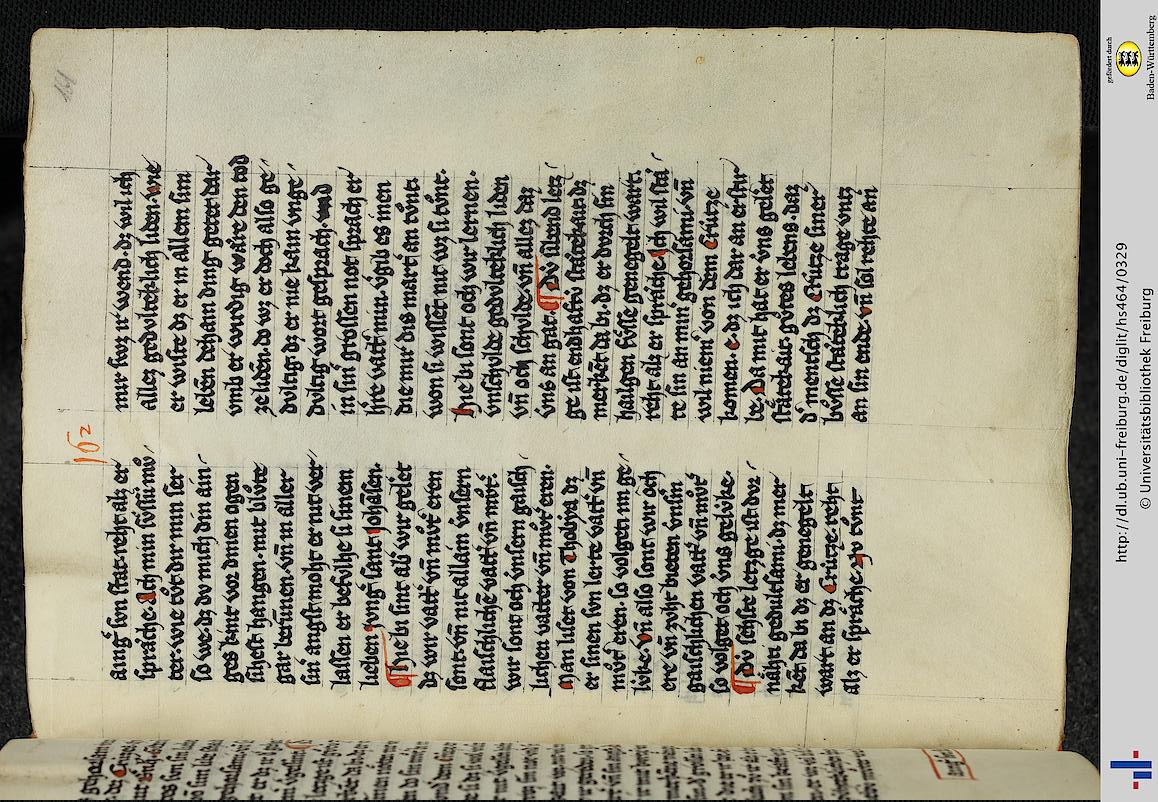 161
162
aing son stat reht als er
spräche. Ach min süssü mů
ter. wie tůt dir min ser
so we. dz du mich din ain
ges kint vor dinen ogen
sihest hangen. mit blůte
gar berunnen. vn̄ in aller
sin̄ angst moht er nit ver
lassen er befilhe si sinem
lieben jung̛ sant Johansen.
¶ Hie bi sint als wir gelert
dz wir vatt̛ vn̄ můt̛ eren
sont. vn̄ nit allain vnsern
flaischlichē vatt̛ vn̄ můt̛.
wir sont och vnsern gaisch
lichen vatter vn̄ můt̛ eren.
Man liset von Thobya dz
er sinen sun lerte vatt̛ vn̄
můt̛ eren. so volgeti im ge
lüke. vn̄ also sont wir och
ere vn̄ zuht bieten vnsrm
gaischlichen vatt̛ vn̄ můt̛
so volget och vns gelüke.
¶ Dü sehste letzge ist dör
nähti gedultsami. dz mer
kēt da bi dz er genegelt
wart an dz Crütze. reht
als er spräche. Jo tůnt
mir swz ir wend dz wil ich
alles gedulteklich liden. wie
er wiste dz er in allem sim
leben dehain ding getet dar
vmb er wirdig wäre den tod
ze liden. do wz er doch also ge
dultig dz er nie kain vnge
dultig wort gesprach. vnd
in sin̄ grossen not sprach er
H̛re vatt̛ min. vgib es inen
die mir dis mart̛ an tůnt.
won si wissent nit wz si tůnt.
Hie bi sont och wir lernen.
vnschulde gedulteklich liden
vn̄ och schulde. vn̄ alles daz
vns an gat. ¶ Dü sibend letz
ge ist endhaftü stätekait dz
merkēt da bi. dz er durch sin
hailgen füsse genegelt wart.
reht als er spräche. Ich wil stä
te sin an min̄ gehorsami. vn̄
wil niem̄ von dem Crütze
komen. e dz ich dar an erstir
be. Da mit hat er vns gelert
stätekait. gůtes lebens. daz
d̛ mentsch dz Crütze siner
bůsse stäteklich trage vntz
an sin ende. vn̄ sol rehte an
http://dl.ub.uni-freiburg.de/diglit/hs464/0329
© Universitätsbibliothek Freiburg
gefördert durch
Baden-Württemberg